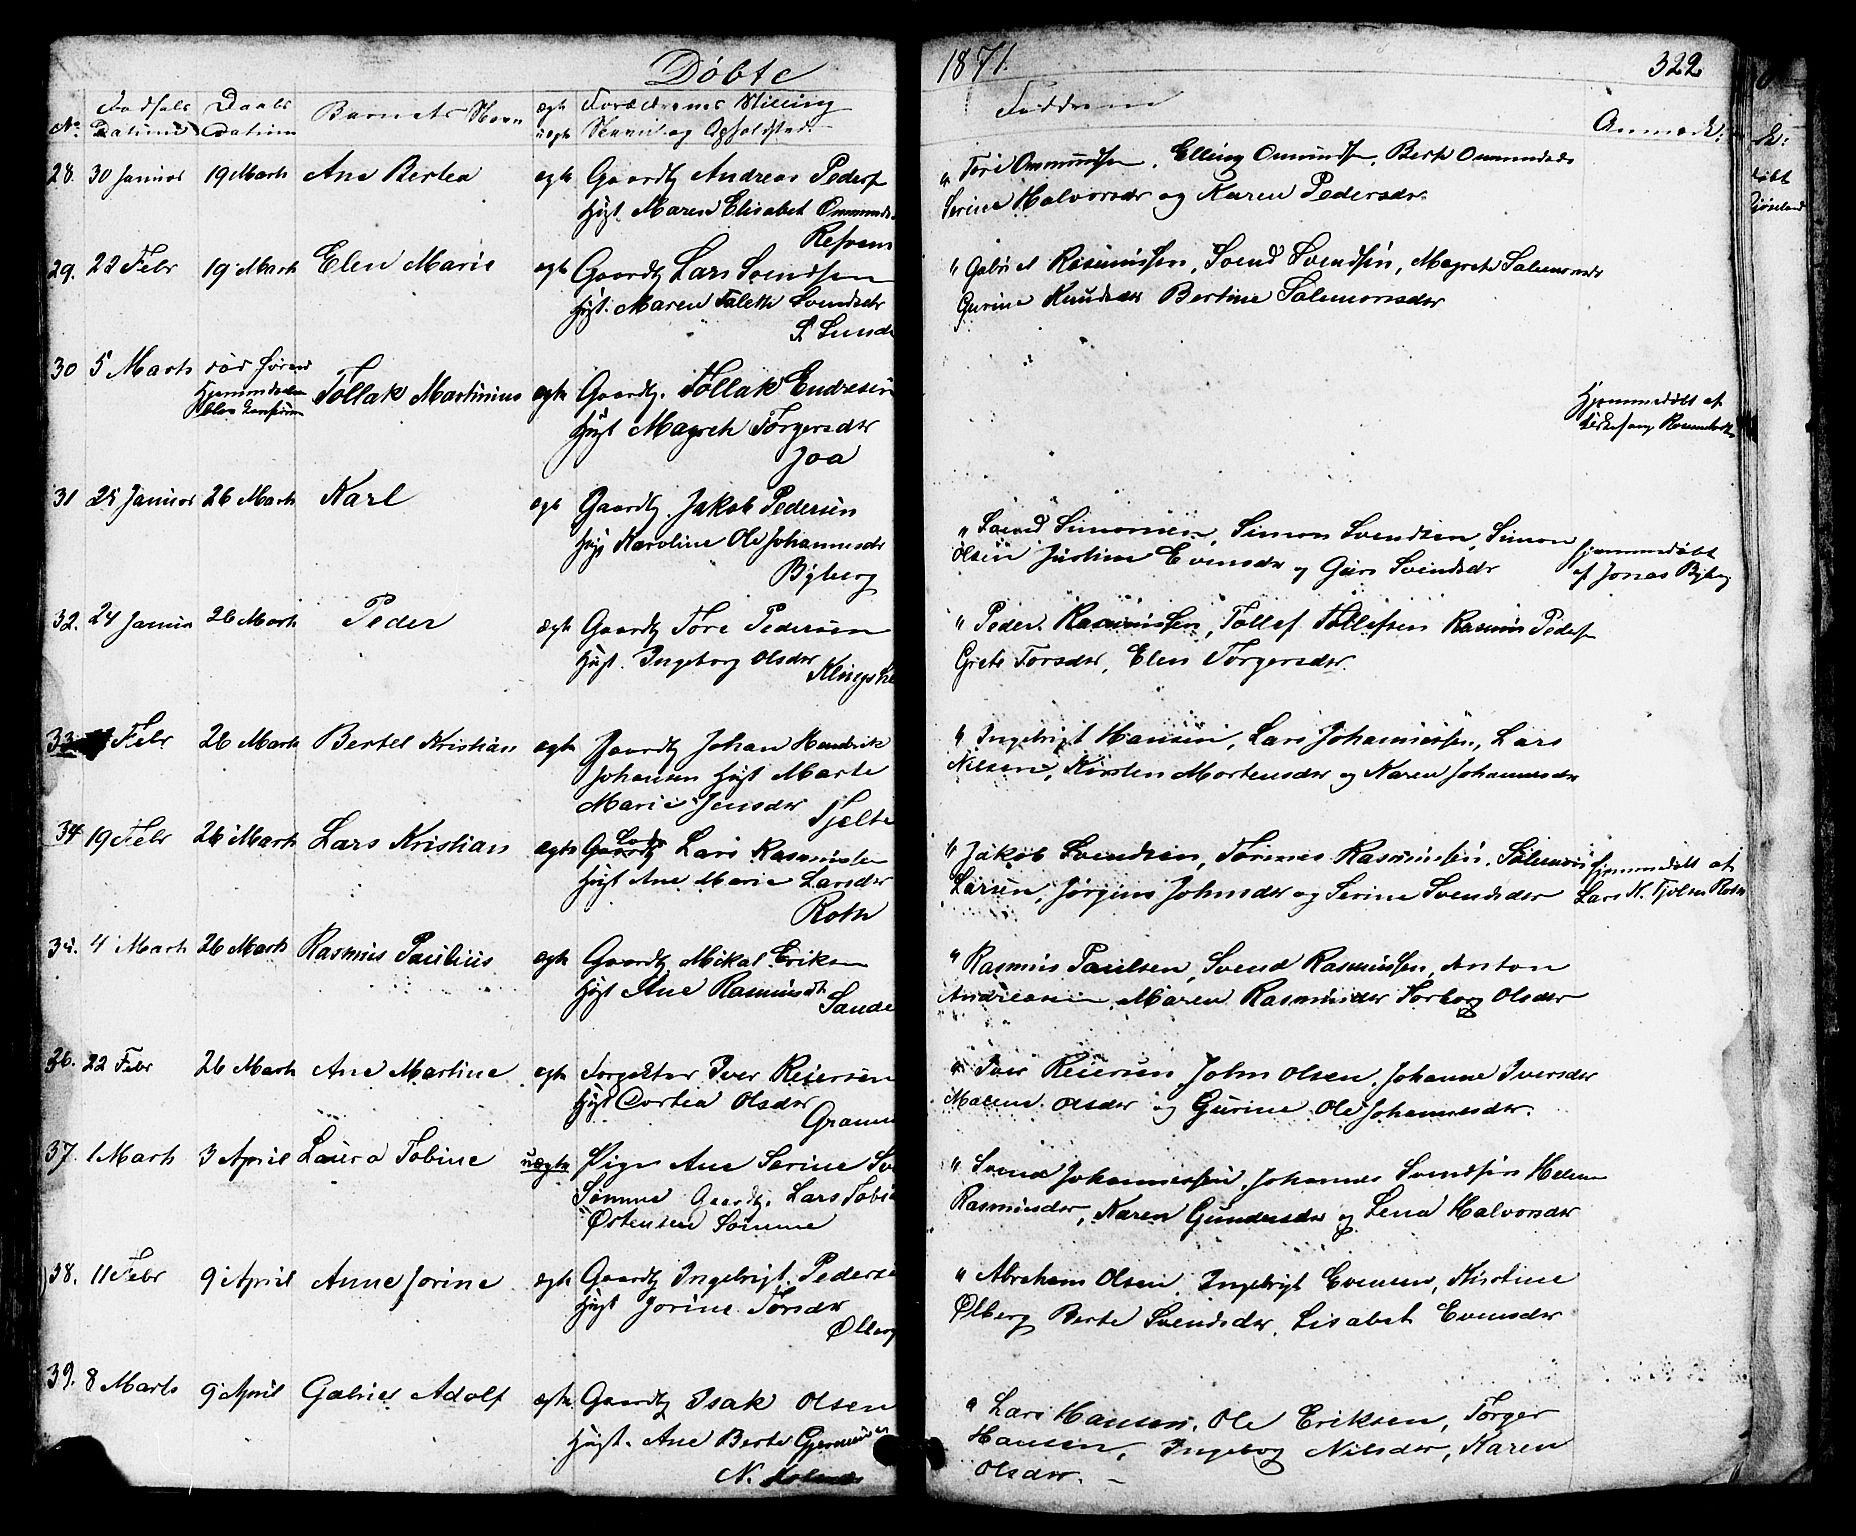 Døbte
1871.
322
No Fødsels Datum Daabs Datum Barnets Navn ægte uægte Forældrenes Stilling
Navn og Opholdsted.
Faddrene
Anmærk:
28. 30 Januar 19 Marts Ane Bertea ægte Gaardbr Andreas Peders
Hust. Maren Elisabet Ommundsd
Refsnes
" Tore Ommundsen, Elling Ommundsen, Berte Ommundsdr
Serine Halvorsdr og Karen Pedersdr.
29. 23 Febr 19 Marts Elen Marie ægte Gaardbr Lars Svendsen
Hust. Maren Svendsdr
" Gabriel Rasmussen, Svend Svendsen, Magrete Salemonsdr
Gurine Knudsdr Bertine Salemonsdr
30 5 Marts Tollak Martinius ægte Gaardbr. Tollak Endresen
Hust Magrete Torgersdr
Joa
Hjemmedøbt af
31 25 Januar 26 Marts Karl ægte Gaardbr. Jakob Pedersen
Hust Karoline Ole Johannesdr
Byberg
" Svend Simonsen, Simon Svendsen, Simon
Olsen Justine Evensdr og Guri Svendsdr
Hjemmedøbt
af Jonas Byberg
32. 24 Januar 26 Marts Peder ægte Gaardbr Tore Pedersen
Hust. Ingeborg Olsdr
" Peder Rasmussen, Tollef Tollefsen Rasmus Peders
Grete Torsdr, Elen Torgersdr.
33. Febr 26 Marts Bertel Kristian ægte Gaardbr Johan Hendrik
Johansen Hust Marte
Marie Jensdr Tjelte
" Ingebrigt Hansen, Lars Johannessen, Lars
Nilsen, Kirsten Mortensdr og Karen Johannesdr
34 19 Febr 26 Marts Lars Kristian ægte Gaardbr Lars Rasmussen
Hust Ane Marie Larsdr
Roth
" Jakob Svendsen, Tønnes Rasmussen, Salemon
Larsen, Jørgine Johnsdr og Serine Svendsdr
Hjemmedøbt af
Lars N.
35. 4 Marts 26 Marts Rasmus Paulius ægte Gaardbr Mikal Eriksen
Hust Ane Rasmusdt
Sande
" Rasmus Paulsen, Svend Rasmussen, Anton
Andreasen Maren Rasmusdr Torborg Olsdr
36. 22 Febr 26 Marts Ane Martine ægte Iver Reiersen
Hust Dortea Olsdr
" Iver Reiersen John Olsen, Johanne Iversdr
Malene Olsdr og Gurine Ole Johannesdr.
37. 1 Marts 3 April Laura Tobine uægte Pige Ane Serine
Sømme Gaardbr. Lars
Østensen Sømme
" Svend Johannessen, Johannes Svendsen Helene
Rasmusdr, Karen Gundersdr og Lena Halvorsdr
38. 11 Febr 9 April Anne Jorine ægte Gaardbr Ingebrigt Pederse
Hust Jorine Torsdr
Ølberg
" Abraham Olsen, Ingebrigt Evensen, Kirstine
Ølberg Berte Svendsdr, Lisabet Evensdr
39. 8 Marts 9 April Gabriel Adolf ægte Gaardbr Isak Olsen
Hust. Ane Berte
" Lars Hansen, Ole Eriksen, Torger
Hansen, Ingeborg Nilsdr, Karen
Olsdr.